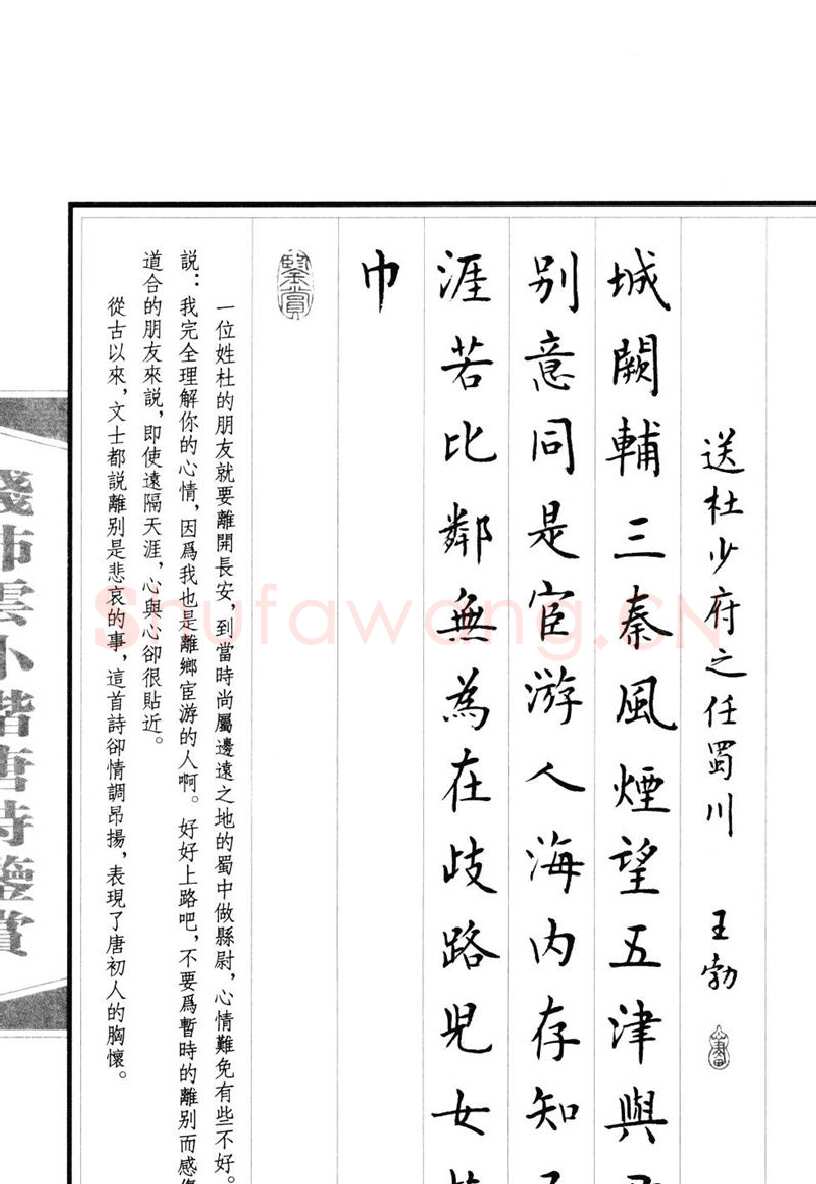 送杜少府之任蜀川 王勃
城闕輔三秦風煙望五津與
别意同是宦游人海内存知
涯若比鄰無為在歧路兒女
巾
鑒賞
一位姓杜的朋友就要離開長安，到當時尚屬邊遠之地的蜀中做縣尉，心情難免有些不好。
説：我完全理解你的心情，因爲我也是離鄉宦游的人啊。好好上路吧，不要爲暫時的離别而感傷
道合的朋友來説，即使遠隔天涯，心與心卻很貼近。
從古以來，文士都説離别是悲哀的事，這首詩卻情調昂揚，表現了唐初人的胸懷。
錢沛雲小楷唐詩鑒賞
Shufawang.CN